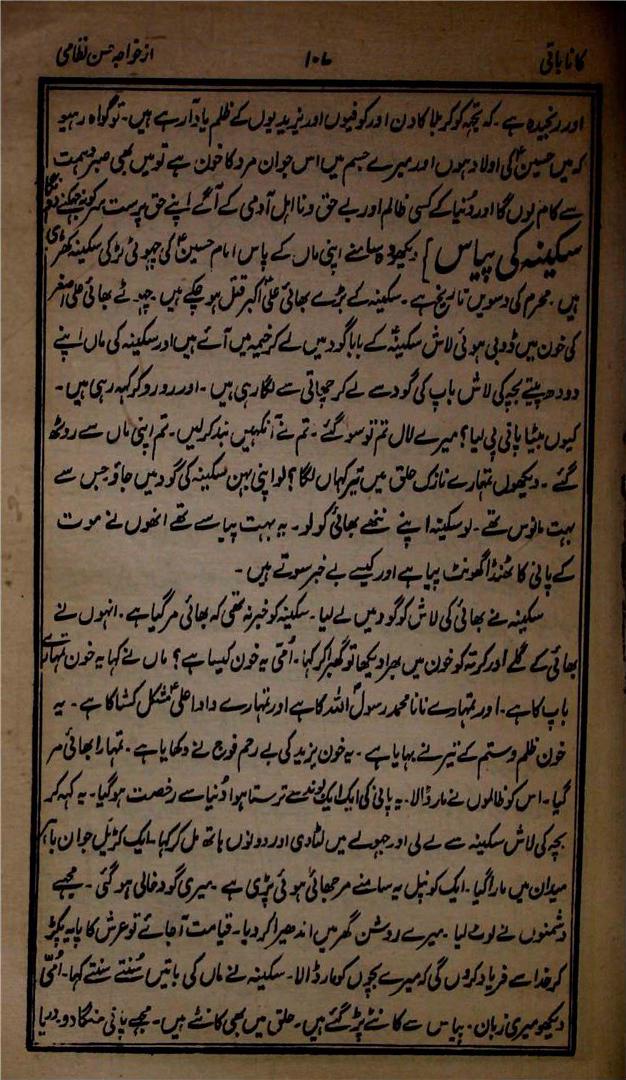 کانا باتی ۱۰۷ از خواجہ حسن نظامی
اور رنجیدہ ہے۔ کہ تجھ کو کربلا کا دن اور کوفیوں اور یزیدیوں کے ظلم یاد آرہے ہیں۔ تو گواہ رہیو
کہ میں حسینؑ کی اولاد ہوں اور میرے جسم میں اس جوان مرد کا خون ہے تو میں بھی صبر و ہمت
سے کام لوں گا اور دُنیا کے کسی ظالم اور بے حق و نا اہل آدمی کے آگے اپنے حق پرست سر کو نہ جھکنے دونگا
سکینہ کی پیاس] دیکھو وہ سامنے اپنی ماں کے پاس امام حسینؑ کی چھوٹی لڑکی سکینہ کھڑی
ہیں۔ محرم کی دسویں تاریخ ہے۔ سکینہ کے بڑے بھائی علی اکبر قتل ہو چکے ہیں۔ چھوٹے بھائی علی اصغر
کی خون میں ڈوبی ہوئی لاش سکینہؑ کے بابا گود میں لے کر خیمہ میں آئے ہیں اور سکینہ کی ماں اپنے
دودھ پیتے بچہ کی لاش باپ کی گود سے لے کر چھاتی سے لگا رہی ہیں۔ اور رو رو کر کہہ رہی ہیں۔
کیوں بیٹا پانی پی لیا؟ میرے لال تم تو سو گئے۔ تم نے آنکھیں بند کر لیں۔ تم اپنی ماں سے روٹھ
گئے۔ دیکھوں تمہارے نازک حلق میں تیر کہاں لگا؟ لو اپنی بہن سکینہ کی گود میں جاؤ جس سے
بہت مانوس تھے۔ لو سکینہ اپنے ننھے بھائی کو لو۔ یہ بہت پیاسے تھے انھوں نے موت
کے پانی کا ٹھنڈا گھونٹ پیا ہے اور کیسے بے خبر سوتے ہیں۔
سکینہ نے بھائی کی لاش کو گود میں لے لیا۔ سکینہ کو خبر نہ تھی کہ بھائی مر گیا ہے۔ انہوں نے
بھائی کے گلے اور کرتہ کو خون میں بھرا دیکھا تو گھبرا کر کہا۔ اُمّی یہ خون کیسا ہے؟ ماں نے کہا یہ خون تمہارے
باپ کا ہے۔ اور تمہارے نانا محمد رسول اللہ کا ہے اور تمہارے دادا علیؑ مشکل کشا کا ہے۔ یہ
خون ظلم و ستم کے تیر نے بہایا ہے۔ یہ خون یزید کی بے رحم فوج نے دکھایا ہے۔ تمہارا بھائی مر
گیا۔ اس کو ظالموں نے مار ڈالا۔ یہ پانی کی ایک ایک بوند سے ترستا ہوا دُنیا سے رخصت ہو گیا۔ یہ کہہ کر
بچہ کی لاش سکینہ سے لے لی اور جھولے میں لٹا دی اور دونوں ہاتھ مل کر کہا۔ ایک کڑیل جوان باہر
میدان میں مارا گیا۔ ایک کونپل یہ سامنے مرجھائی ہوئی پڑی ہے۔ میری گود خالی ہو گئی۔ مجھے
دشمنوں نے لوٹ لیا۔ میرے روشن گھر میں اندھیرا کر دیا۔ قیامت آجائے تو عرش کا پایہ پکڑ
کر خدا سے فریاد کروں گی کہ میرے بچوں کو مار ڈالا۔ سکینہ نے ماں کی باتیں سُنتے سنتے کہا۔ اُمّی
دیکھو میری زبان۔ پیاس سے کانٹے پڑ گئے ہیں۔ حلق میں بھی کانٹے ہیں۔ مجھے پانی منگا دو